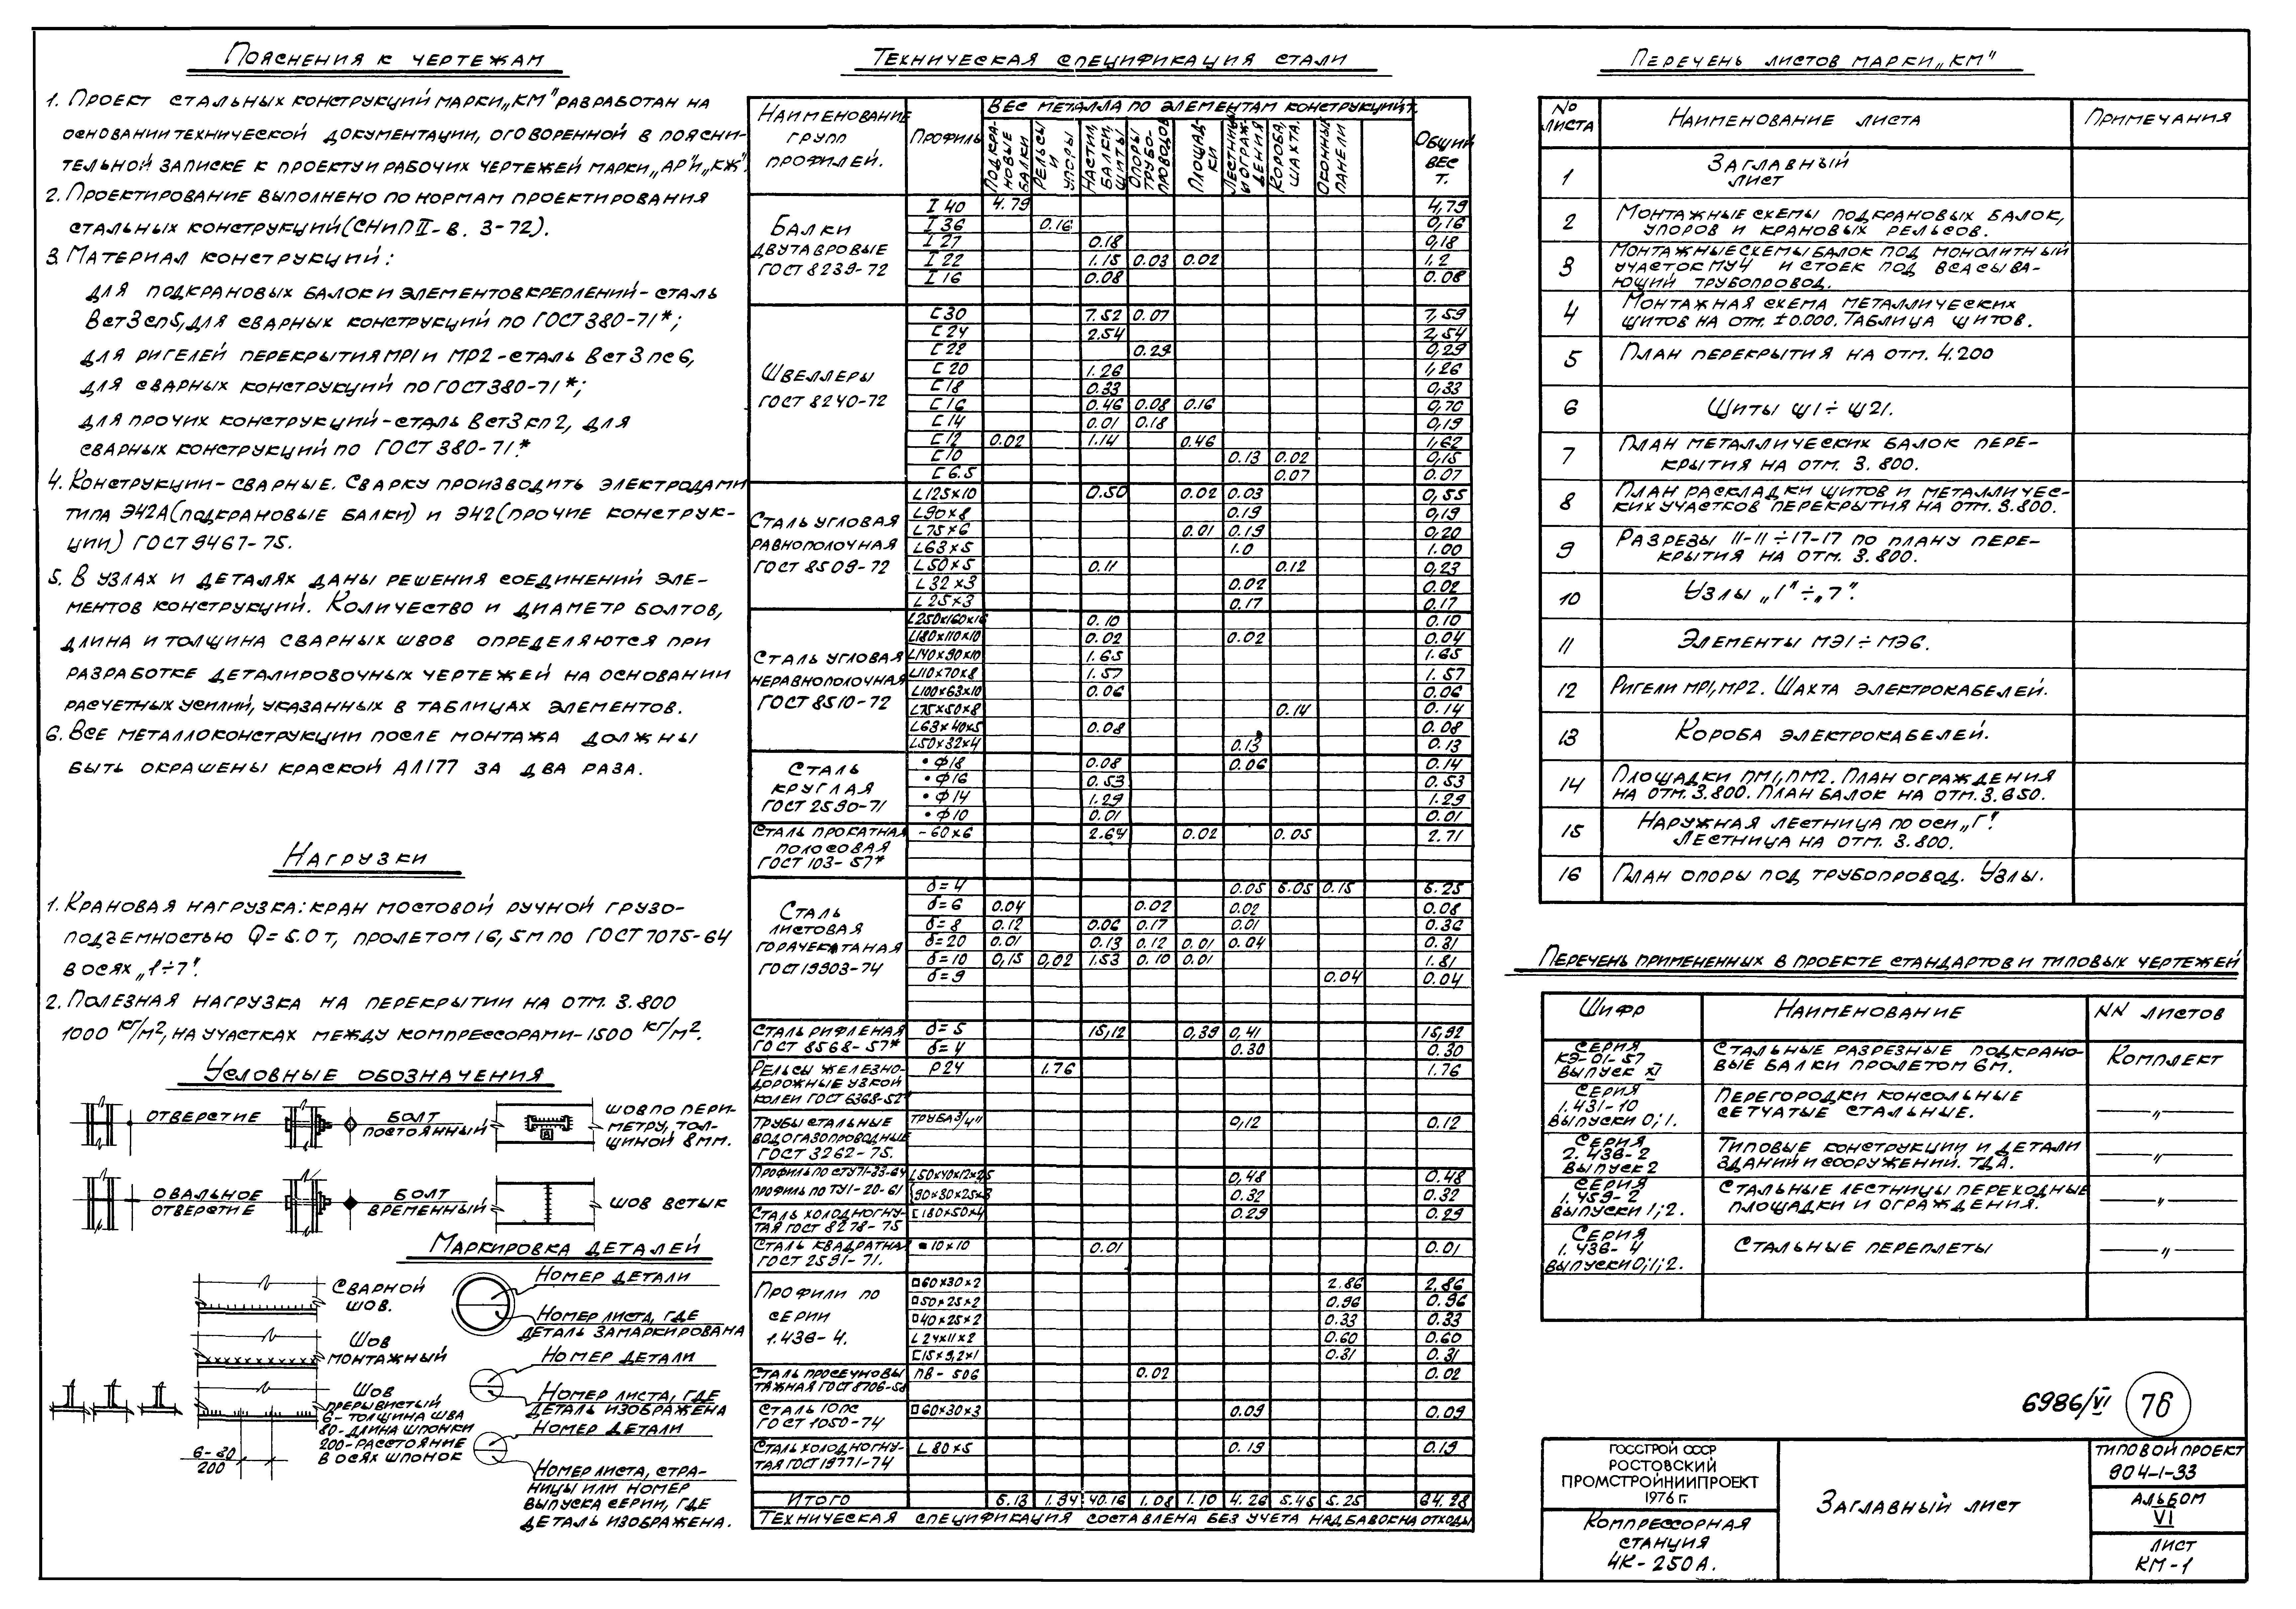 Пояснения к чертежам
1. Проект стальных конструкций марки „КМ" разработан на
основании технической документации, оговоренной в поясни-
тельной записке к проекту и рабочих чертежей марки „АР" и „КЖ".
2. Проектирование выполнено по нормам проектирования
стальных конструкций (СНиП II-В. 3-72).
3. Материал конструкций:
для подкрановых балок и элементов креплений - сталь
Вст3сп5, для сварных конструкций по ГОСТ 380-71*;
для ригелей перекрытия МР1 и МР2 - сталь Вст3пс6,
для сварных конструкций по ГОСТ 380-71*;
для прочих конструкций - сталь Вст3кп2, для
сварных конструкций по ГОСТ 380-71*.
4. Конструкции - сварные. Сварку производить электродами
типа Э42А (подкрановые балки) и Э42 (прочие конструк-
ции) ГОСТ 9467-75.
5. В узлах и деталях даны решения соединений эле-
ментов конструкций. Количество и диаметр болтов,
длина и толщина сварных швов определяются при
разработке деталировочных чертежей на основании
расчетных усилий, указанных в таблицах элементов.
6. Все металлоконструкции после монтажа должны
быть окрашены краской АЛ177 за два раза.
Нагрузки
1. Крановая нагрузка: кран мостовой ручной грузо-
подъемностью Q = 5.0 т, пролетом 16,5м по ГОСТ 7075-64
в осях „1÷7".
2. Полезная нагрузка на перекрытии на отм. 3.800
1000 кг/м², на участках между компрессорами - 1500 кг/м².
Условные обозначения
отверстие
болт постоянный
шов по пери-
метру, тол-
щиной 8мм.
овальное отверстие
болт временный
шов встык
Маркировка деталей
Сварной
шов.
Номер детали
Номер листа, где
деталь замаркирована
Шов
монтажный
Номер детали
Номер листа, где
деталь изображена
Шов
прерывистый
6 - толщина шва
80 - длина шпонки
200 - расстояние
в осях шпонок
6-80
200
Номер детали
Номер листа, стра-
ницы или номер
выпуска серии, где
деталь изображена.
Техническая спецификация стали
Наименование групп профилей. Профиль Вес металла по элементам конструкций т. Общий вес т.
Подкра-новые балки Рельсы и упоры Настил, балки, щиты Опоры трубо-проводов Площад-ки Лестницы и ограж-дения Короба, шахта. Оконные панели
Балки двутавровые ГОСТ 8239-72
I 40 4.79 4,79
I 36 0.16 0,16
I 27 0.18 0,18
I 22 1.15 0.03 0.02 1,2
I 16 0.08 0.08
Швеллеры ГОСТ 8240-72
[ 30 7.52 0.07 7,59
[ 24 2.54 2,54
[ 22 0.29 0,29
[ 20 1.26 1,26
[ 18 0.33 0,33
[ 16 0.46 0.08 0.16 0,70
[ 14 0.01 0.18 0,19
[ 12 0.02 1.14 0.46 1,62
[ 10 0.13 0.02 0,15
[ 6.5 0.07 0.07
Сталь угловая равнополочная ГОСТ 8509-72
L125×10 0.50 0.02 0.03 0,55
L90×8 0.19 0,19
L75×6 0.01 0.19 0,20
L63×5 1.0 1.00
L50×5 0.11 0.12 0,23
L32×3 0.02 0.02
L25×3 0.17 0.17
Сталь угловая неравнополочная ГОСТ 8510-72
L250×160×16 0.10 0.10
L180×110×10 0.02 0.02 0.04
L140×90×10 1.65 1.65
L110×70×8 1.57 1.57
L100×63×10 0.06 0.06
L75×50×8 0.14 0.14
L63×40×5 0.08 0.08
L50×32×4 0.13 0.13
Сталь круглая ГОСТ 2590-71
• ф18 0.08 0.06 0.14
• ф16 0.53 0.53
• ф14 1.29 1.29
• ф10 0.01 0.01
Сталь прокатная полосовая ГОСТ 103-57*
- 60×6 2.64 0.02 0.05 2.71
Сталь листовая горячекатаная ГОСТ 19903-74
δ=4 0.05 5.05 0.15 5.25
δ=6 0.04 0.02 0.02 0.08
δ=8 0.12 0.06 0.17 0.01 0.36
δ=20 0.01 0.13 0.12 0.01 0.04 0.31
δ=10 0,15 0,02 1.53 0.10 0.01 1.81
δ=9 0.04 0.04
Сталь рифленая ГОСТ 8568-57*
δ=5 15,12 0,39 0,41 15,92
δ=4 0.30 0.30
Рельсы железно-
дорожные узкой
колеи ГОСТ 6368-52*
Р24 1.76 1.76
Трубы стальные
водогазопроводные
ГОСТ 3262-75.
Труба 3/4" 0,12 0.12
Профиль по СТУ71-33-64 0,48 0.48
Профиль по ТУ1-20-61 0.32 0.32
Сталь холодногну-
тая ГОСТ 8278-75
[180×50×4 0.29 0.29
Сталь квадратная
ГОСТ 2591-71.
▪10×10 0.01 0.01
Профили по серии 1.436-4.
□60×30×2 2.86 2,86
□50×25×2 0.96 0.96
□40×25×2 0.33 0.33
L 24×11×2 0.60 0.60
[15×9,2×1 0.31 0.31
Сталь просечновы
тяжная ГОСТ 8706-58
ПВ-506 0.02 0.02
Сталь 10пс
ГОСТ 1050-74
□60×30×3 0.09 0.09
Сталь холодногну-
тая ГОСТ 19771-74
L 80×5 0.19 0.19
Итого 5.13 1.94 40.16 1.08 1.10 4.26 5.45 5.25 64.28
Техническая спецификация составлена без учета надбавок на отходы
Перечень листов марки „КМ"
№ листа Наименование листа Примечания
1 Заглавный
лист
2 Монтажные схемы подкрановых балок,
упоров и крановых рельсов.
3 Монтажные схемы балок под монолитный
участок МУ4 и стоек под всасыва-
ющий трубопровод.
4 Монтажная схема металлических
щитов на отм. ±0.000. Таблица щитов.
5 План перекрытия на отм. 4.200
6 Щиты Щ1 ÷ Щ21.
7 План металлических балок пере-
крытия на отм. 3.800.
8 План раскладки щитов и металличес-
ких участков перекрытия на отм. 3.800.
9 Разрезы 11-11 ÷ 17-17 по плану пере-
крытия на отм. 3.800.
10 Узлы „1" ÷ „7".
11 Элементы МЭ1 ÷ МЭ6.
12 Ригели МР1, МР2. Шахта электрокабелей.
13 Короба электрокабелей.
14 Площадки ПМ1, ПМ2. План ограждения
на отм. 3.800. План балок на отм. 3.650.
15 Наружная лестница по оси „Г".
Лестница на отм. 3.800.
16 План опоры под трубопровод. Узлы.
Перечень примененных в проекте стандартов и типовых чертежей
Шифр Наименование NN листов
Серия
КЭ-01-57
Выпуск XI
Стальные разрезные подкрано-
вые балки пролетом 6м.
Комплект
Серия
1.431-10
Выпуски 0; 1.
Перегородки консольные
сетчатые стальные.
—„—
Серия
2.436-2
Выпуск 2
Типовые конструкции и детали
зданий и сооружений. ТДА.
—„—
Серия
1.459-2
Выпуски 1; 2.
Стальные лестницы переходные
площадки и ограждения.
—„—
Серия
1.436-4
Выпуски 0; 1; 2.
Стальные переплеты
—„—
6986/VI 76
ГОССТРОЙ СССР
РОСТОВСКИЙ
ПРОМСТРОЙНИИПРОЕКТ
1976 г.
Компрессорная
станция
4К-250А.
Заглавный лист
Типовой проект
904-1-33
Альбом
VI
Лист
КМ-1